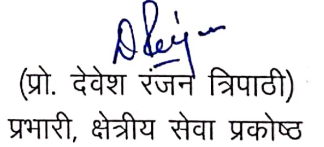 (प्रो. देवेश रंजन त्रिपाठी)
प्रभारी, क्षेत्रीय सेवा प्रकोष्ठ